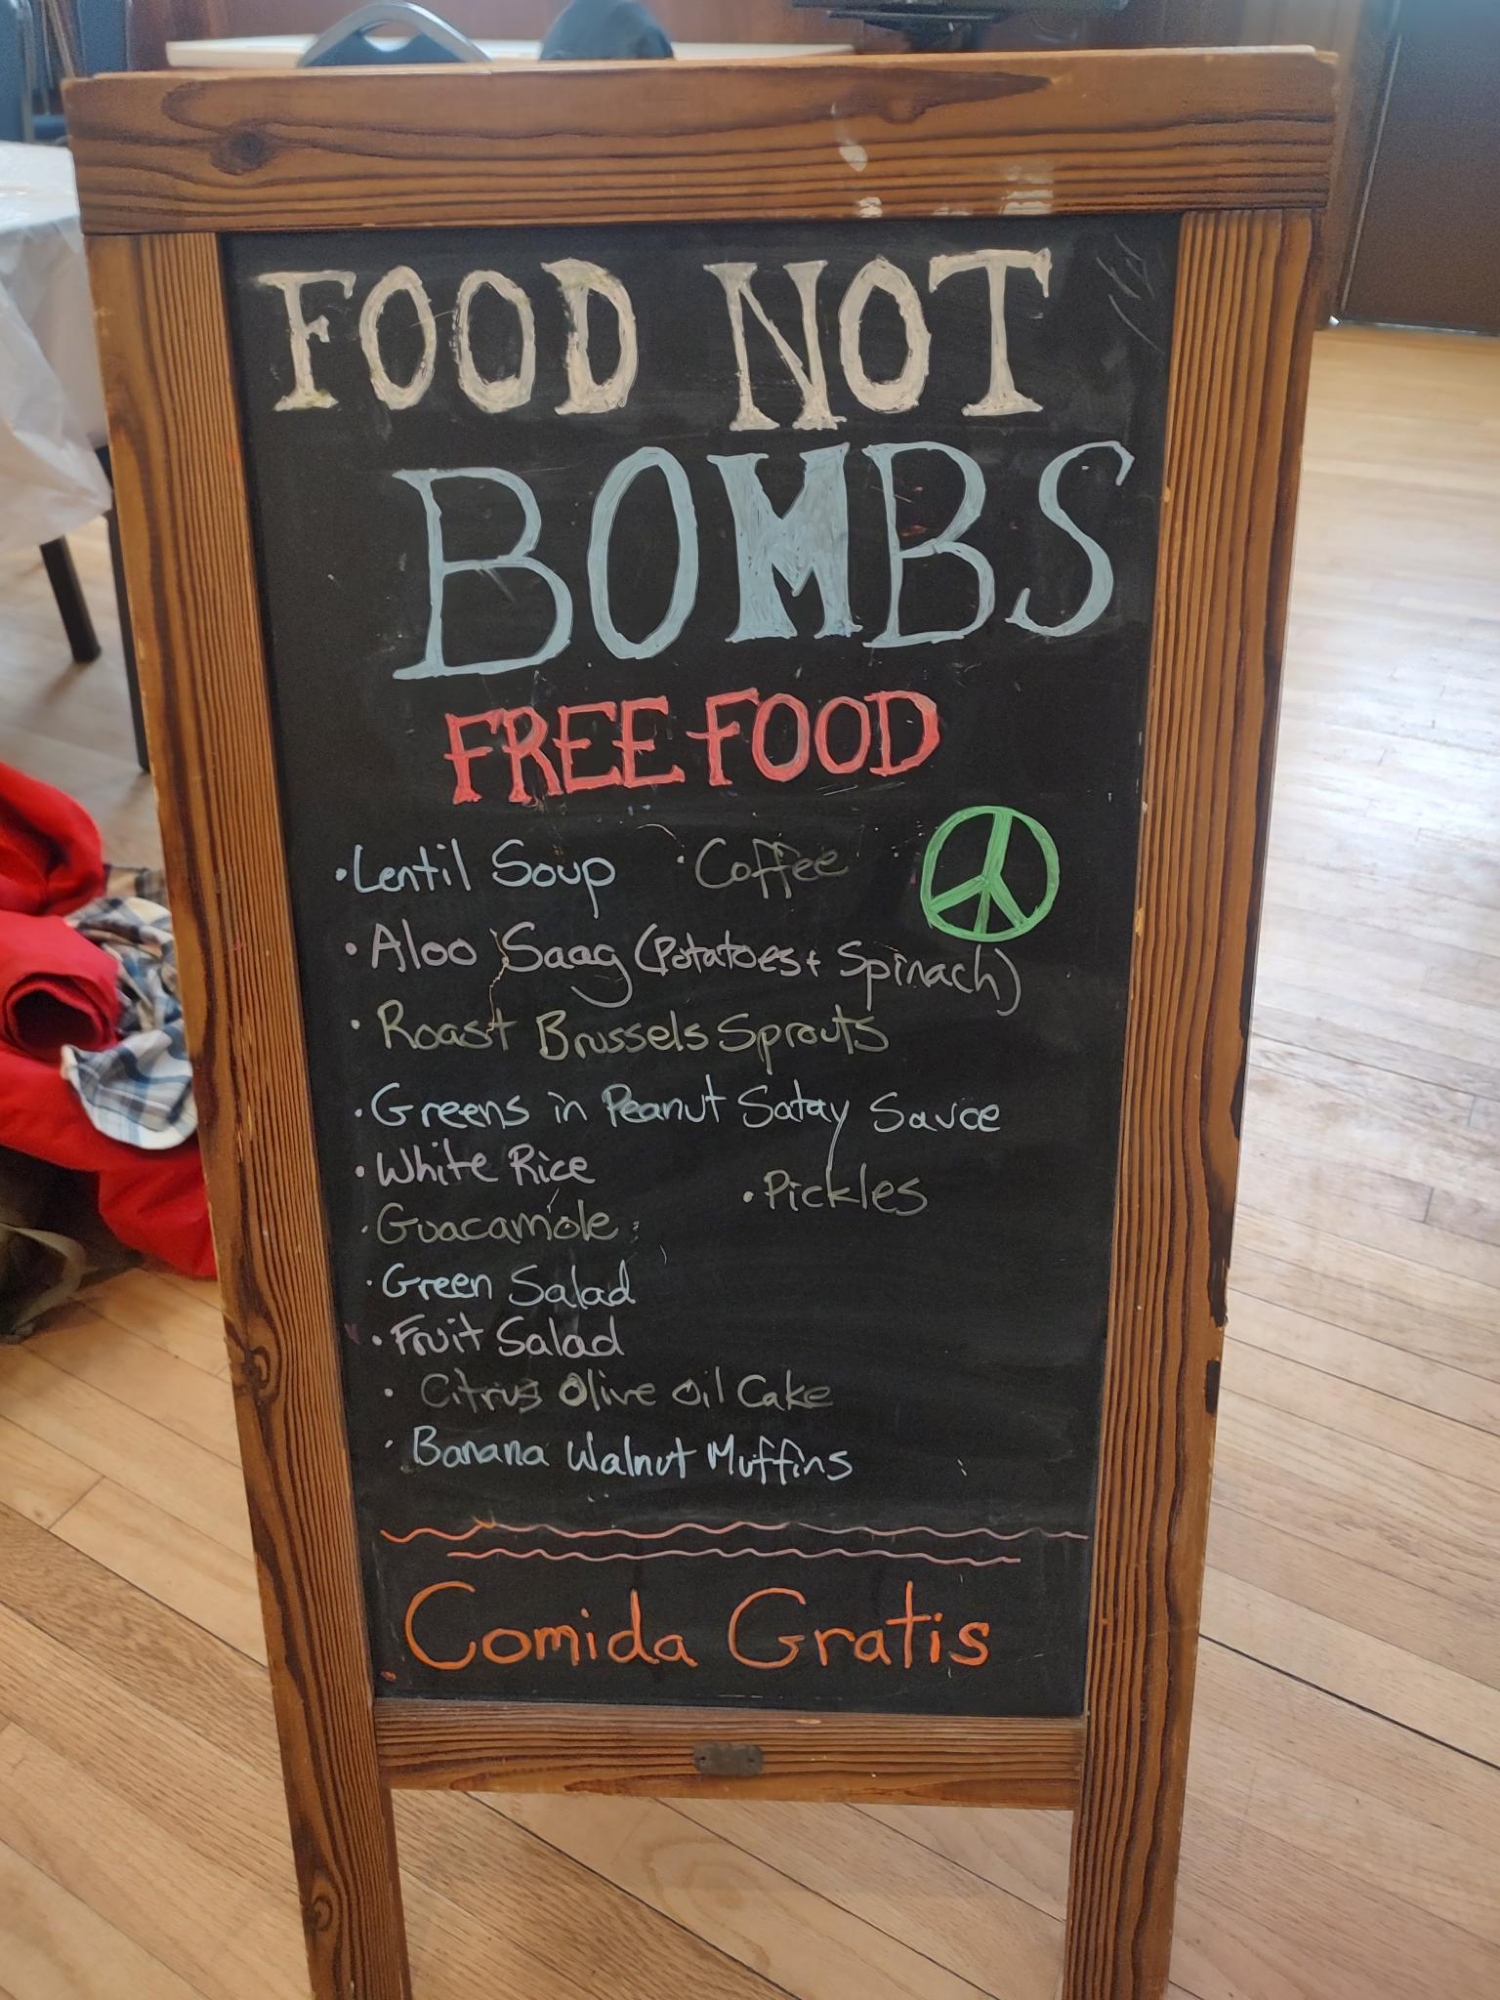 FOOD NOT
BOMBS
FREE FOOD
•Lentil Soup •Coffee
•Aloo Saag (Potatoes + Spinach)
•Roast Brussels Sprouts
•Greens in Peanut Satay Sauce
•White Rice
•Pickles
•Guacamole
•Green Salad
•Fruit Salad
•Citrus Olive Oil Cake
•Banana Walnut Muffins
Comida Gratis